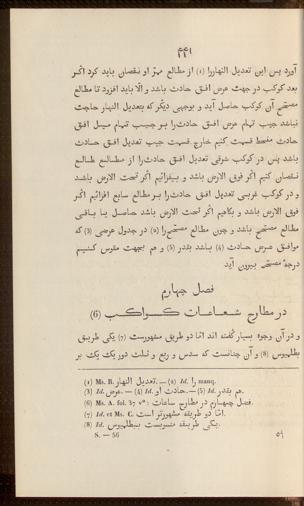 ۴۴۱
آورد پس این تعدیل النهاررا (1) از مطالع مهتر او نقصان باید کرد اگر
بعد کوکب در جهت عرض افق حادث باشد و الّا باید افزود تا مطالع
مصحّح آن کوکب حاصل آید و بوجهی دیگر که بتعدیل النهار حاجت
نباشد جیب تمام عرض افق حادث‌را بر جیب تمام میل افق
حادث منحط قسمت کنیم خارج قسمت جیب تعدیل افق حادث
باشد پس در کوکب شرقی تعدیل افق حادث‌را از مطالع طالع
نقصان کنیم اگر فوق الارض باشد و بیفزائیم اگر تحت الارض باشد
و در کوکب غربی تعدیل افق حادث‌را بر مطالع سابع افزائیم اگر
فوق الارض باشد و بکاهیم اگر تحت الارض باشد حاصل یا باقی
مطالع مصحّح باشد و چون مطالع مصحّح‌را (2) در جدول عرضی (3) که
موافق عرض حادث (4) باشد بقدر (5) و هم بجهت مقوس کنیم
درجهٔ مصحّح بیرون آید
فصل چهارم
در مطارح شعاعات کواکب (6)
و در آن وجوه بسیار گفته اند امّا دو طریق مشهورست (7) یکی طریق
بطلمیوس (8) و آن چنانست که سدس و ربع و ثلث دور یک یک بر
(1) Ms. B. تعدیل النهار. — (2) Id. را manq.
(3) Id. عرض. — (4) Id. حادث او. — (5) Id. هم بقدر.
(6) Ms. A. fol. 37 v°: فصل چهارم در مطارح ساعات.
(7) Id. et Ms. C. امّا دو طریقه مشهورتر است.
(8) Id. یکی طریقه منسوبست ببطلمیوس.
S. — 56